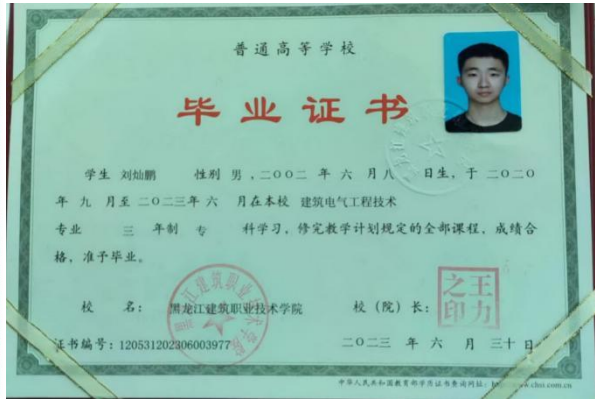 普通高等学校
毕业证书
学生 刘灿鹏 性别 男，二〇〇二 年 六 月 八 日生，于 二〇二〇
年 九 月至 二〇二三 年 六 月在本校 建筑电气工程技术
专业 三 年制 专 科学习，修完教学计划规定的全部课程，成绩合
格，准予毕业。
校 名： 黑龙江建筑职业技术学院 校（院）长： 王力之印
证书编号：120531202306003977 二〇二三 年 六 月 三十 日
中华人民共和国教育部学历证书查询网址：http://www.chsi.com.cn